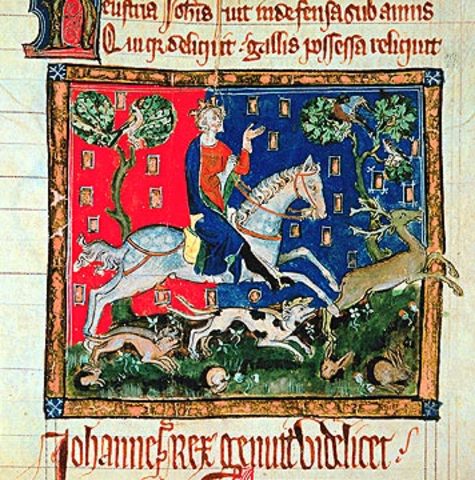 Neustria Johis fuit indefensa sub annis
Qui qr deliquit . gallis possessa reliquit
Johannes REX genuit videlicet